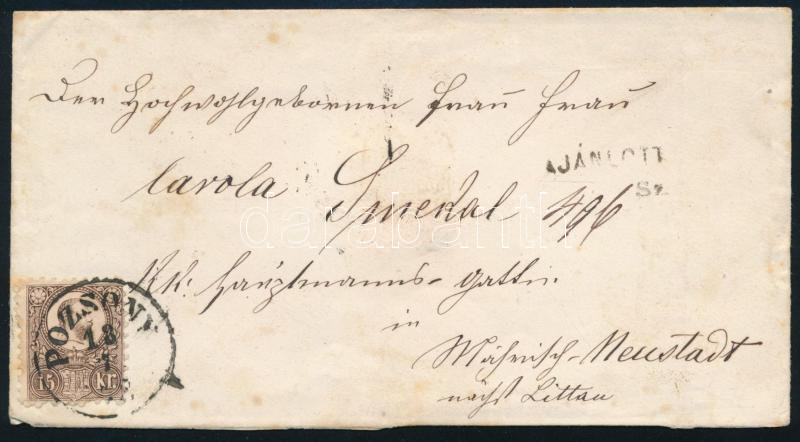 Der Hochwohlgebornen Frau Frau
AJÁNLOTT
Sz.
Carola Smekal 496
KK: Hauptmanns-gattin
in
Mährisch-Neustadt
nächst Littau
POZSONY
18
15 KR
darabanth